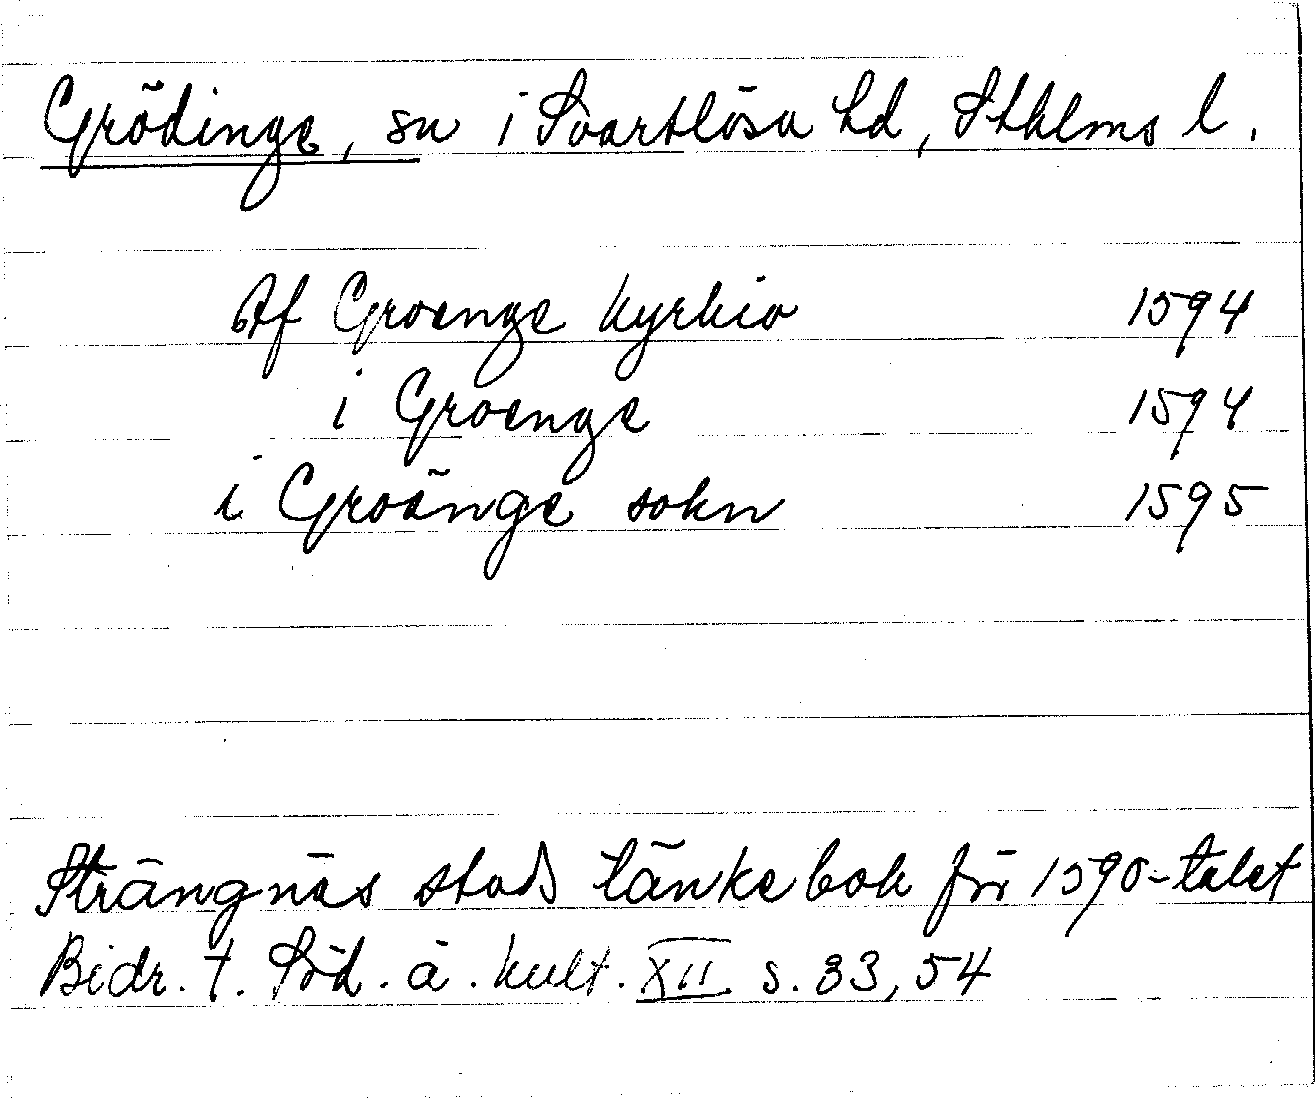 Grödinge, sn i Svartlösa hd, Sthlms l.
Af Groenge kyrkio 1594
i Groenge 1594
i Groänge sokn 1595
Strängnäs stads tänkebok för 1590-talet
Bidr. t. Söd. ä. kult. XII s. 33, 54